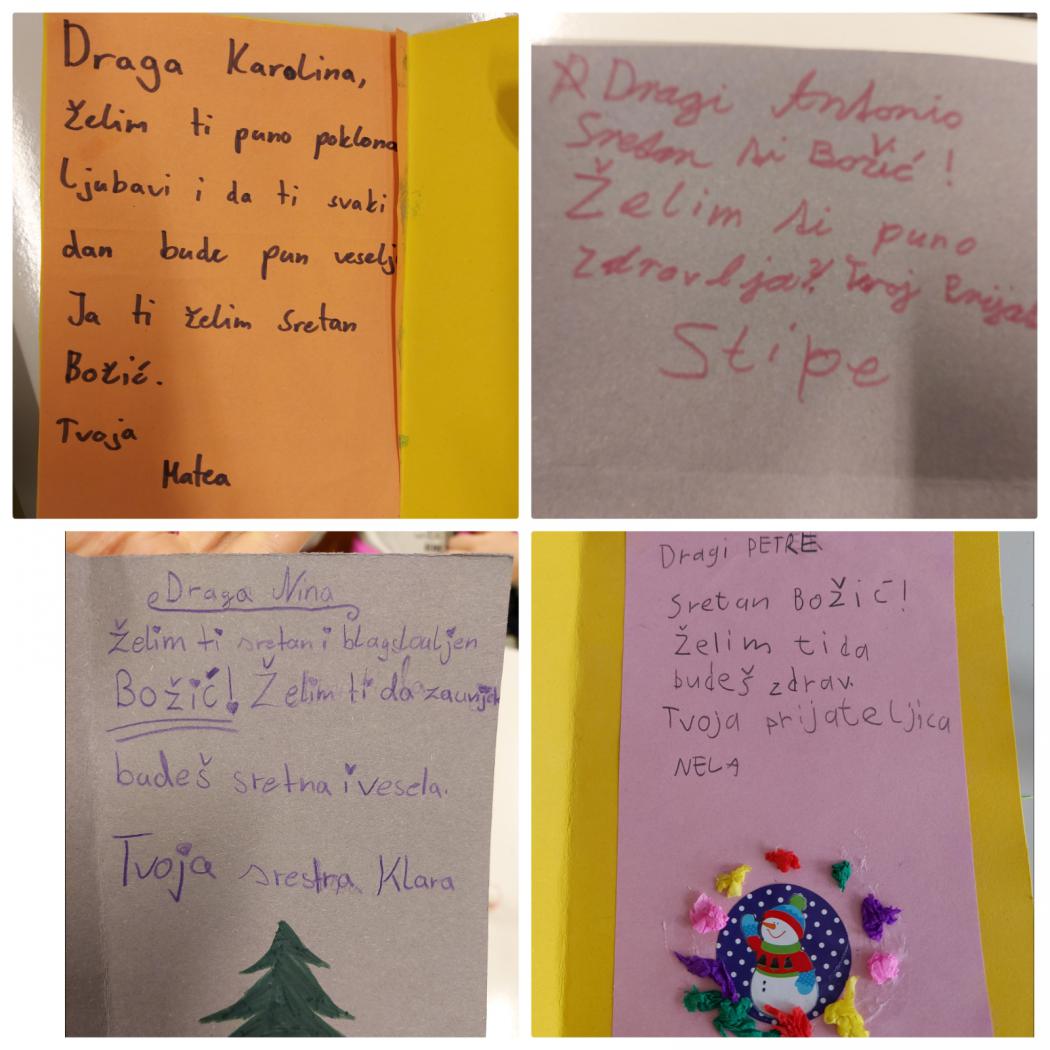 Draga Karolina,
želim ti puno poklona
ljubavi i da ti svaki
dan bude pun veselj
Ja ti želim sretan
Božić.
Tvoja
Matea
Dragi Antonio
Sretan ti Božić!
Želim ti puno
zdravlja! Tvoj
Stipe
Draga Nina
Želim ti sretan i blagdavljen
Božić! Želim ti da zauvjek
budeš sretna i vesela.
Tvoja srestra Klara
Dragi PETRE
Sretan BOŽIĆ!
Želim ti da
budeš zdrav.
Tvoja prijateljica
NELA